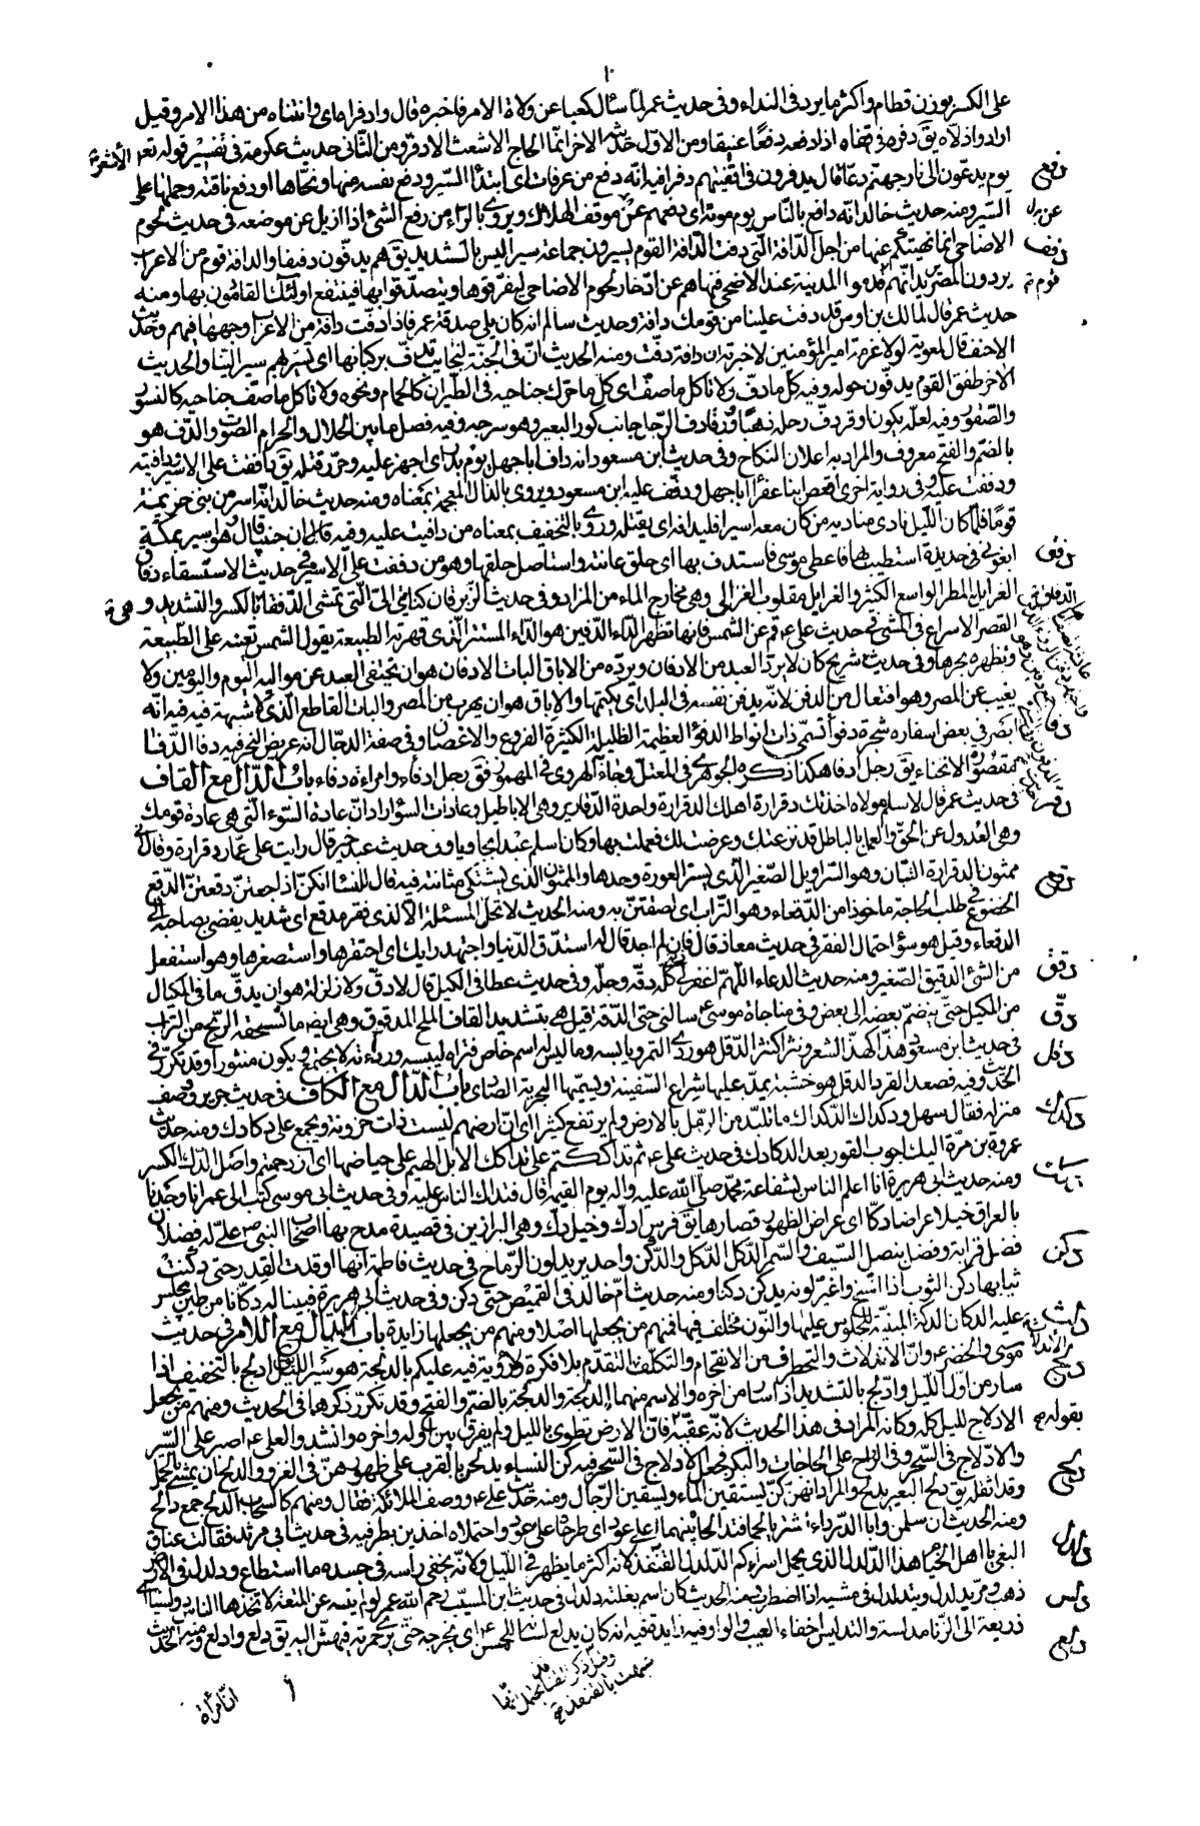 على الكسر بوزن قطام وأكثر ما يرد في النداء وفي حديث عمر لما سأل كعبا عن ولاة الامر فاخبره قال وادفراه اى وانتناه من هذا الامر وقيل
اراد واذلاه يق دفره في قفاه اذا دفعه دفعا عنيفا ومن الاول حديثه الاخر انما الحاج الاشعث الادفر ومن الثاني حديث عكرمة في تفسير قوله تعر
يوم يدعون الى نار جهنم دعا قال يدفرون في اقفيتهم دفرا فيه انه دفع من عرفات اى ابتدأ السير ودفع نفسه منها ونحاها او دفع ناقته وحملها على
السير ومنه حديث خالد انه دافع بالناس يوم موتة اى دفعهم عن موقف الهلاك ويروى بالراء من رفع الشئ اذا ازيل عن موضعه في حديث لحوم
الاضاحى انما نهيتكم عنها من اجل الدافة التي دفت الدافة القوم يسيرون جماعة سيرا ليس بالشديد يق هم يدفون دفيفا والدافة قوم من الاعراب
يردون المصر يريد انهم قدموا المدينة عند الاضحى فنهاهم عن ادخار لحوم الاضاحى ليفرقوها ويتصدقوا بها فينتفع اولئك القادمون بها ومنه
حديث عمر قال لمالك بن اوس قد دفت علينا من قومك دافة وحديث سالم انه كان يلى صدقة عمر فاذا دفت دافة من الاعراب وجهها فيهم وحديث
الاحنف قال لمعوية لولا عزمة امير المؤمنين لاخبرته ان دافة دفت ومنه الحديث ان في الجنة لنجايب تدف بركبانها اى تسير بهم سيرا لينا والحديث
الاخر طفق القوم يدفون حوله وفيه كل ما دف ولا تأكل ما صف اى كل ما حرك جناحيه في الطيران كالحمام ونحوه ولا تأكل ما صف جناحيه كالنسور
والصقور وفيه لعله يكون اوقر دف رحله ذهبا وورقا دف الرحل جانب كور البعير وهو سرجه وفيه فصل ما بين الحلال والحرام الصوت والدف هو
بالضم والفتح معروف والمراد به اعلان النكاح وفي حديث ابن مسعود انه داف ابا جهل يوم بدر اى اجهز عليه وحرر قتله يق دافقت على الاسير ودافيته
ودففت عليه وفي رواية اخرى اقعص ابنا عفراء ابا جهل ودفف عليه ابن مسعود ويروى بالذال المعجمة بمعناه ومنه حديث خالد انه اسر من بني جذيمة
قوما فلما كان الليل نادى مناديه من كان معه اسير فليدافه اى يقتله وروى بالتخفيف بمعناه من دافيت عليه وفيه ان خبيبا قال وهو اسير بمكة
ابغوني حديدة استطيب بها فاعطى موسى فاستدف بها اى حلق عانته واستاصل حلقها وهو من دففت على الاسير في حديث الاستسقاء دفاق
العزايل المطر الواسع الكثير والعزايل مقلوب العزالى وهي مخارج الماء من المزادة وفي حديث الزبرقان كنائنى الى التي تمشى الدفقى بالكسر والتشديد و
القصر الاسراع في المشى في حديث على ع قم عن الشمس فانها تظهر الداء الدفين هو الداء المستتر الذي قهرته الطبيعة يقول الشمس تعينه على الطبيعة
وتظهره بحرها وفي حديث شريح كان لا يرد العبد من الادفان ويرده من الاباق البات الادفان هو ان يختفى العبد عن مواليه اليوم واليومين ولا
يغيب عن المصر وهو افتعال من الدفن لانه يدفن نفسه في البلد اى يكتمها والاباق هو ان يهرب من المصر والبات القاطع الذي لا شبهة فيه فيه انه
ابصر في بعض اسفاره شجرة دفواء تسمى ذات انواط الدفواء العظيمة الظليلة الكثيرة الفروع والاغصان وفي صفة الدجال انه عريض النحر فيه دفا الدفا
مقصور الانحناء يق رجل ادفا هكذا ذكره الجوهري في المعتل وجاء به الهروى في المهموز فق رجل ادفأ وامراءة دفاء باب الدال مع القاف
في حديث عمر قال لاسلم مولاه اخذتك دقرارة اهلك الدقرارة واحدة الدقارير وهي الاباطيل وعادات السوء اراد ان عادة السوء التي هي عادة قومك
وهي العدول عن الحق والعمل بالباطل قد نزعتك وعرضت لك فعملت بها وكان اسلم عبدا بجاويا وفي حديث عبد خير قال رايت على عمار دقرارة وقال انى
ممثون الدقرارة التبان وهو السراويل الصغير الذي يستر العورة وحدها والممثون الذي يشتكى مثانته فيه قال للنساء انكن اذا جعتن دقعتن الدقع
الخضوع في طلب الحاجة ماخوذ من الدقعاء وهو التراب اى لصقتن به ومنه الحديث لا تحل المسئلة الا لذى فقر مدقع اى شديد يفضى بصاحبه الى
الدقعاء وقيل هو سوء احتمال الفقر في حديث معاذ قال فان لم اجد قال له استدق الدنيا واجتهد رايك اى احتقرها واستصغرها وهو استفعل
من الشئ الدقيق الصغير ومنه حديث الدعاء اللهم اغفر لى ذنبى كله دقه وجله وفي حديث عطا في الكيل قال لا دق ولا زلزلة هو ان يدق ما في المكيال
من المكيل حتى ينضم بعضه الى بعض وفي مناجاة موسى ع سالنى حتى الدقة قيل هي بتشديد القاف الملح المدقوق وهي ايضا ما تسحقه الريح من التراب
في حديث ابن مسعود هذا كهذ الشعر ونثرا كنثر الدقل هو ردى التمر ويابسه وما ليس له اسم خاص فتراه ليبسه ورداءته لا يجتمع ويكون منثورا وقد تكرر في
الحديث وفيه فصعد القرد الدقل هو خشبة يمد عليها شراع السفينة وتسميها البحرية الصارى باب الدال مع الكاف في حديث جرير ووصف
منزله فقال سهل ودكداك الدكداك ما تلبد من الرمل بالارض ولم يرتفع كثيرا اى ان ارضهم ليست ذات حزونة ويجمع على دكادك ومنه حديث
عمرو بن مرة اليك اجوب القور بعد الدكادك في حديث على ع ثم تداككتم على تداكك الابل الهيم على حياضها اى ازدحمتم واصل الدك الكسر
ومنه حديث ابي هريرة انا اعلم الناس بشفاعة محمد صلى الله عليه واله يوم القيمة قال فتداك الناس عليه وفي حديث ابي موسى كتب الى عمر انا وجدنا
بالعراق خيلا عراضا دكا اى عراض الظهور قصارها يق فرس ادك وخيل دك وهي البراذين في قصيدة مدح بها اصحاب النبي ص على له فضلان
فضل قرابة وفضل بنصل السيف والسمر الدكل الدكل والدكن واحد يريد لون الرماح في حديث فاطمة انها اوقدت القدر حتى دكنت
ثيابها دكن الثوب اذا اتسخ واغبر لونه يدكن دكنا ومنه حديث ام خالد في القميص حتى دكن وفي حديث ابى هريرة فبنينا له دكانا من طين يجلس
عليه الدكان الدكة المبنية للجلوس عليها والنون مختلف فيها فمنهم من يجعلها اصلا ومنهم من يجعلها زايدة باب الدال مع اللام في حديث
موسى والخضر ع وان الاندلاث والتخطرف من الانقحام والتكلف التقدم بلا فكرة ولا روية فيه عليكم بالدلجة هو سير الليل يق ادلج بالتخفيف اذا
سار من اول الليل وادلج بالتشديد اذا سار من اخره والاسم منهما الدلجة والدلجة بالضم والفتح وقد تكرر ذكرهما في الحديث ومنهم من يجعل
الادلاج لليل كله وكانه المراد في هذا الحديث لانه عقبه فان الارض تطوى بالليل ولم يفرق بين اوله واخره وانشد والعلى ع اصبر على السير
والادلاج في السحر وفي الرواح على الحاجات والبكر فجعل الادلاج في السحر فيه كن النساء يدلحن بالقرب على ظهورهن في الغزو والدلح ان يمشى بالحمل
وقد اثقله يق دلح البعير يدلح والمراد انهن كن يستقين الماء ويسقين الرجال ومنه حديث على ع ووصف الملائكة فقال ومنهم كالسحاب الدلح جمع دالح
ومنه الحديث ان سلمن وابا الدرداء اشتريا لحما فتدالحاه بينهما على عود اى طرحاه على عود واحتملاه اخذين بطرفيه في حديث ابي مرثد فقالت عناق
البغى يا اهل الخيام هذا الدلدل الذي يحمل اسراءكم الدلدل القنفذ لانه اكثر ما يظهر في الليل ولانه يخفى رأسه في جسده ما استطاع ودلدل في الارض
ذهب ومر يدلدل ويتدلدل في مشيه اذا اضطرب ومنه الحديث كان اسم بغلته دلدل في حديث ابن المسيب رحم الله عمر لو لم ينه عن المتعة لاتخذها الناس دولسيا اى
ذريعة الى الزنا مدلسة والتدليس اخفاء العيب والواو فيه زايدة فيه انه كان يدلع لسانه للحسن ع اى يخرجه حتى يرى حمرته فيهش اليه يق دلع وادلع ومنه الحديث
دفع
دفف
دفق
دفن
دفا
دقر
دقع
دقق
دقل
دكدك
دكك
دكن
دلث
دلج
دلح
دلدل
دلس
دلع
ان امرأة